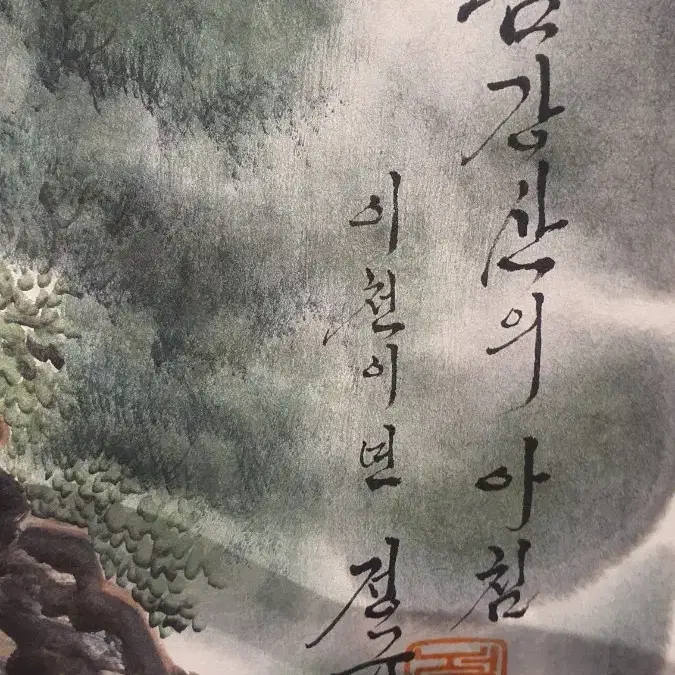 금강산의 아침
이천이년 정